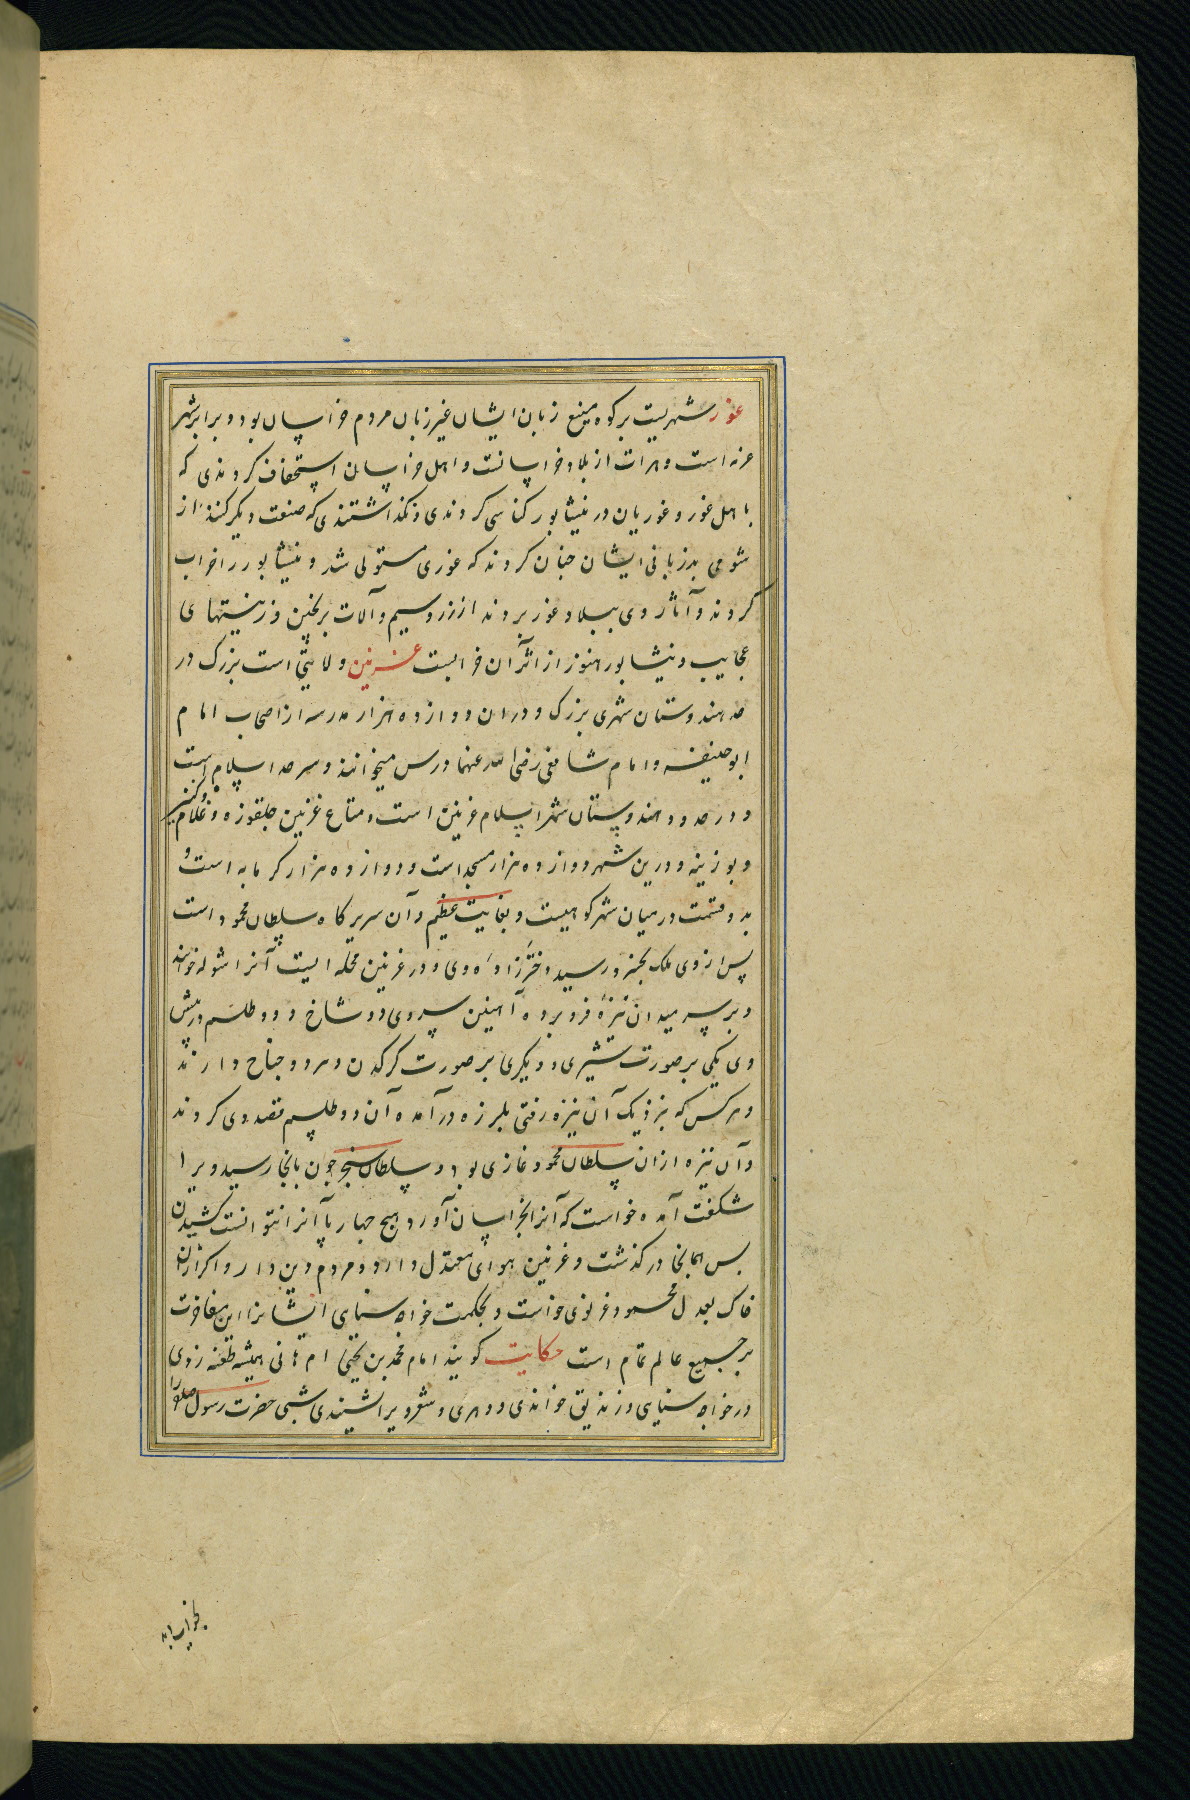 غور شهریست بر کوه منیع زبان ایشان غیر زبان مردم خراسان بود و برابر شهر
غزنه است و هرات از بلاد خراسانست و اهل خراسان استخفاف کردندی که
با اهل غور و غوریان در نیشابور کناسی کردندی و نگذاشتندی که صنعت دیگر کنند از
شومی بدزبانی ایشان چنان کردند که غوری مستولی شد و نیشابور را خراب
کردند و آثار وی ببلاد غور بردند از زر و سیم و آلات برنجین و زینتهای
عجایب و نیشابور هنوز از اثر آن خرابست غزنین ولایتی است بزرک در
حد هندوستان شهری بزرک و در ان دوازده هزار مدرسه از اصحاب امام
ابو حنیفه و امام شافعی رضی الله عنهما درس میخوانند و سرحد اسلام است
و در حدود هندوستان شهر اسلام غزنین است و متاع غزنین جلقوزه و غلام و کنیز
و بوزینه و درین شهر دوازده هزار مسجد است و دوازده هزار کرمابه است و
بدو قسمت در میان شهر کوهیست و بغایت عظیم و آن سریرکاه سلطان محمود است
پس از وی ملک بجنر رسید دخترزاده وی و در غزنین محله ایست آنرا شوله خوانند
و بر سر میدان نیزه فرو برده آهنین سروی دو شاخ و دو طلسم در پیش
وی یکی بر صورت شیری و دیکری بر صورت کرکدن و هر دو جناح دارند
و هر کس که بنزدیک آن نیزه رفتی بلرزه درآمده آن دو طلسم قصد وی کردند
و آن نیزه از ان سلطان محمود غازی بود و سلطان سنجر چون بانجا رسید ویرا
شکفت آمده خواست که آنرا بخراسان آورد هیچ چهارپا آنرا نتوانست کشیدن
پس همانجا در کذشت و غزنین هوای معتدل دارد و مردم دین دار و اکر از ان
خاک بعدل محمود غزنوی خواست و بحکمت خواجه سنایی ایشانرا این مفاخرت
بر جمیع عالم تمام است حکایت کویند امام محمد بن یحیی ام هانی همیشه طعنه زدی
در خواجه سنایی و زندیق خواندی و دهری و شعر ویرا شنیدی شبی حضرت رسول صلعم را
بخواب